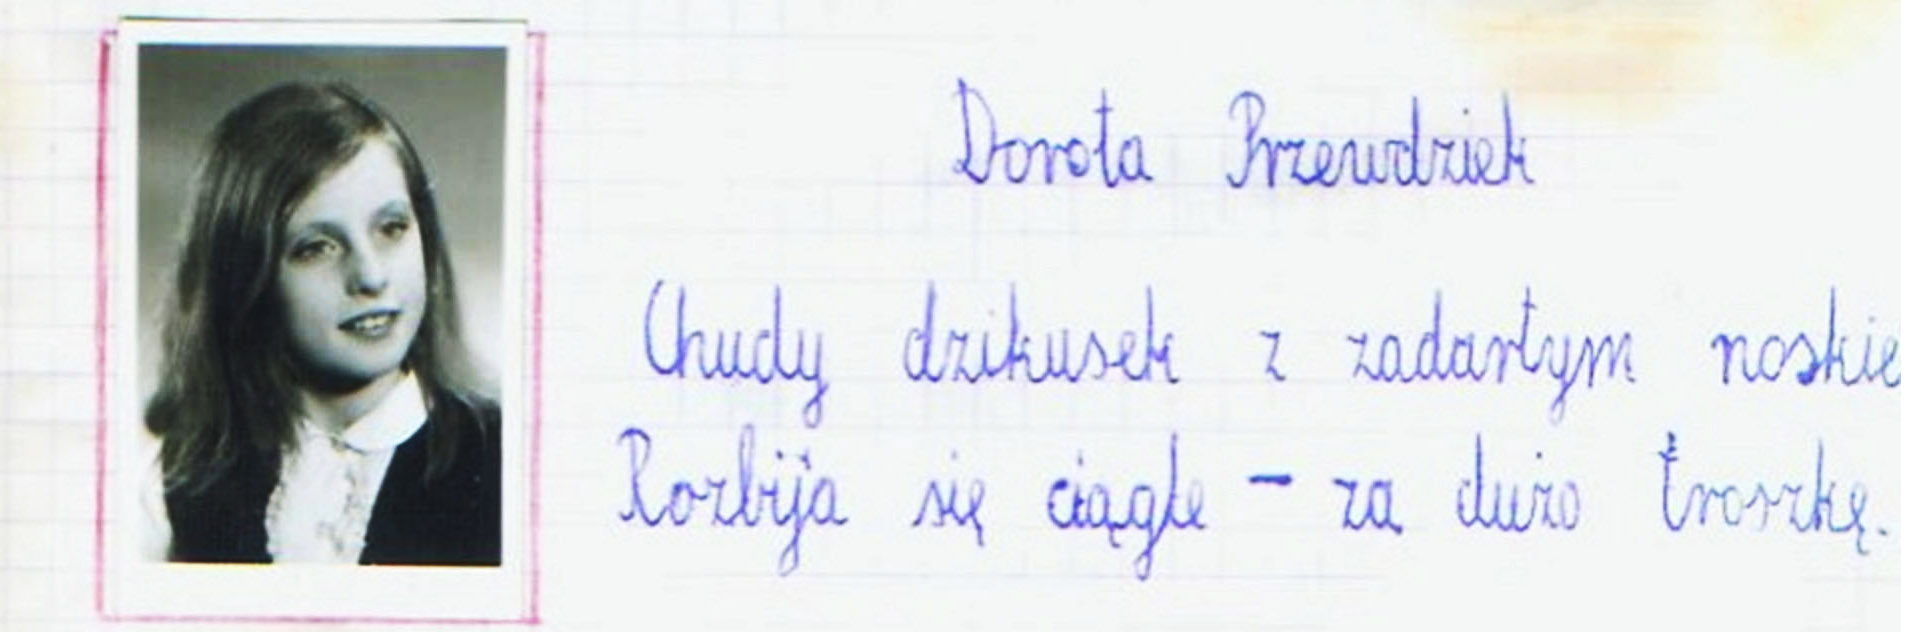 Dorota Przewdziek
Chudy dzikusek z zadartym noskie
Rozbija się ciągle – za dużo troszkę.